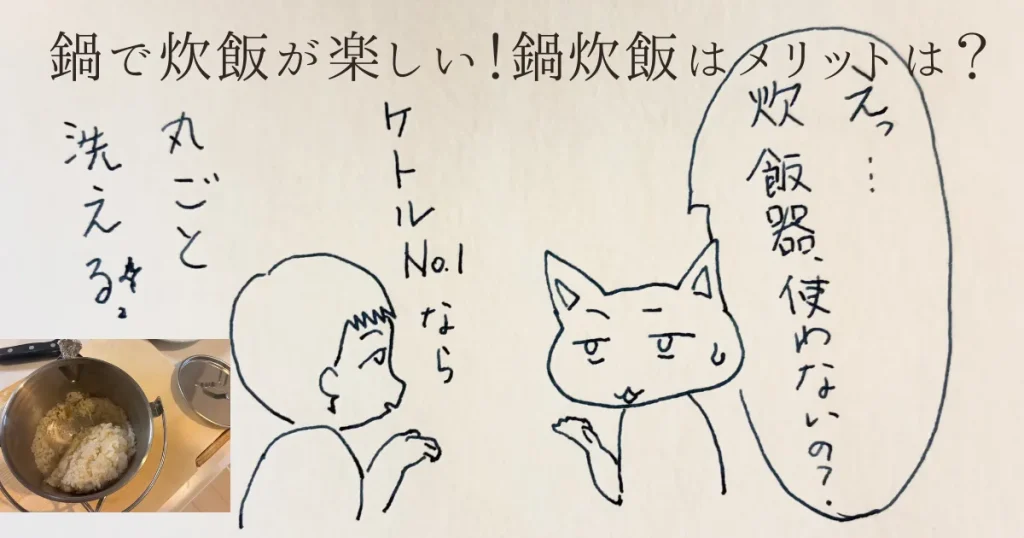 鍋で炊飯が楽しい!鍋炊飯はメリットは?
えっ…
炊飯器、使わないの?
ケトルNo.1なら
丸ごと
洗える